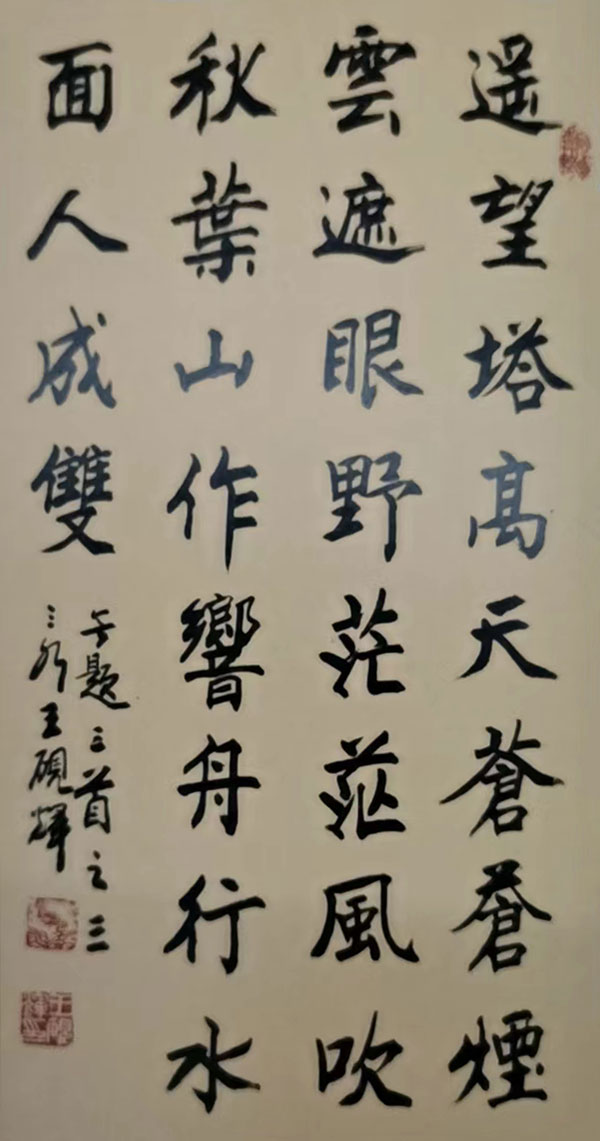 遥望塔高天蒼蒼煙
雲遮眼野茫茫風吹
秋葉山作響舟行水
面人成雙
無題三首之三
王硯輝